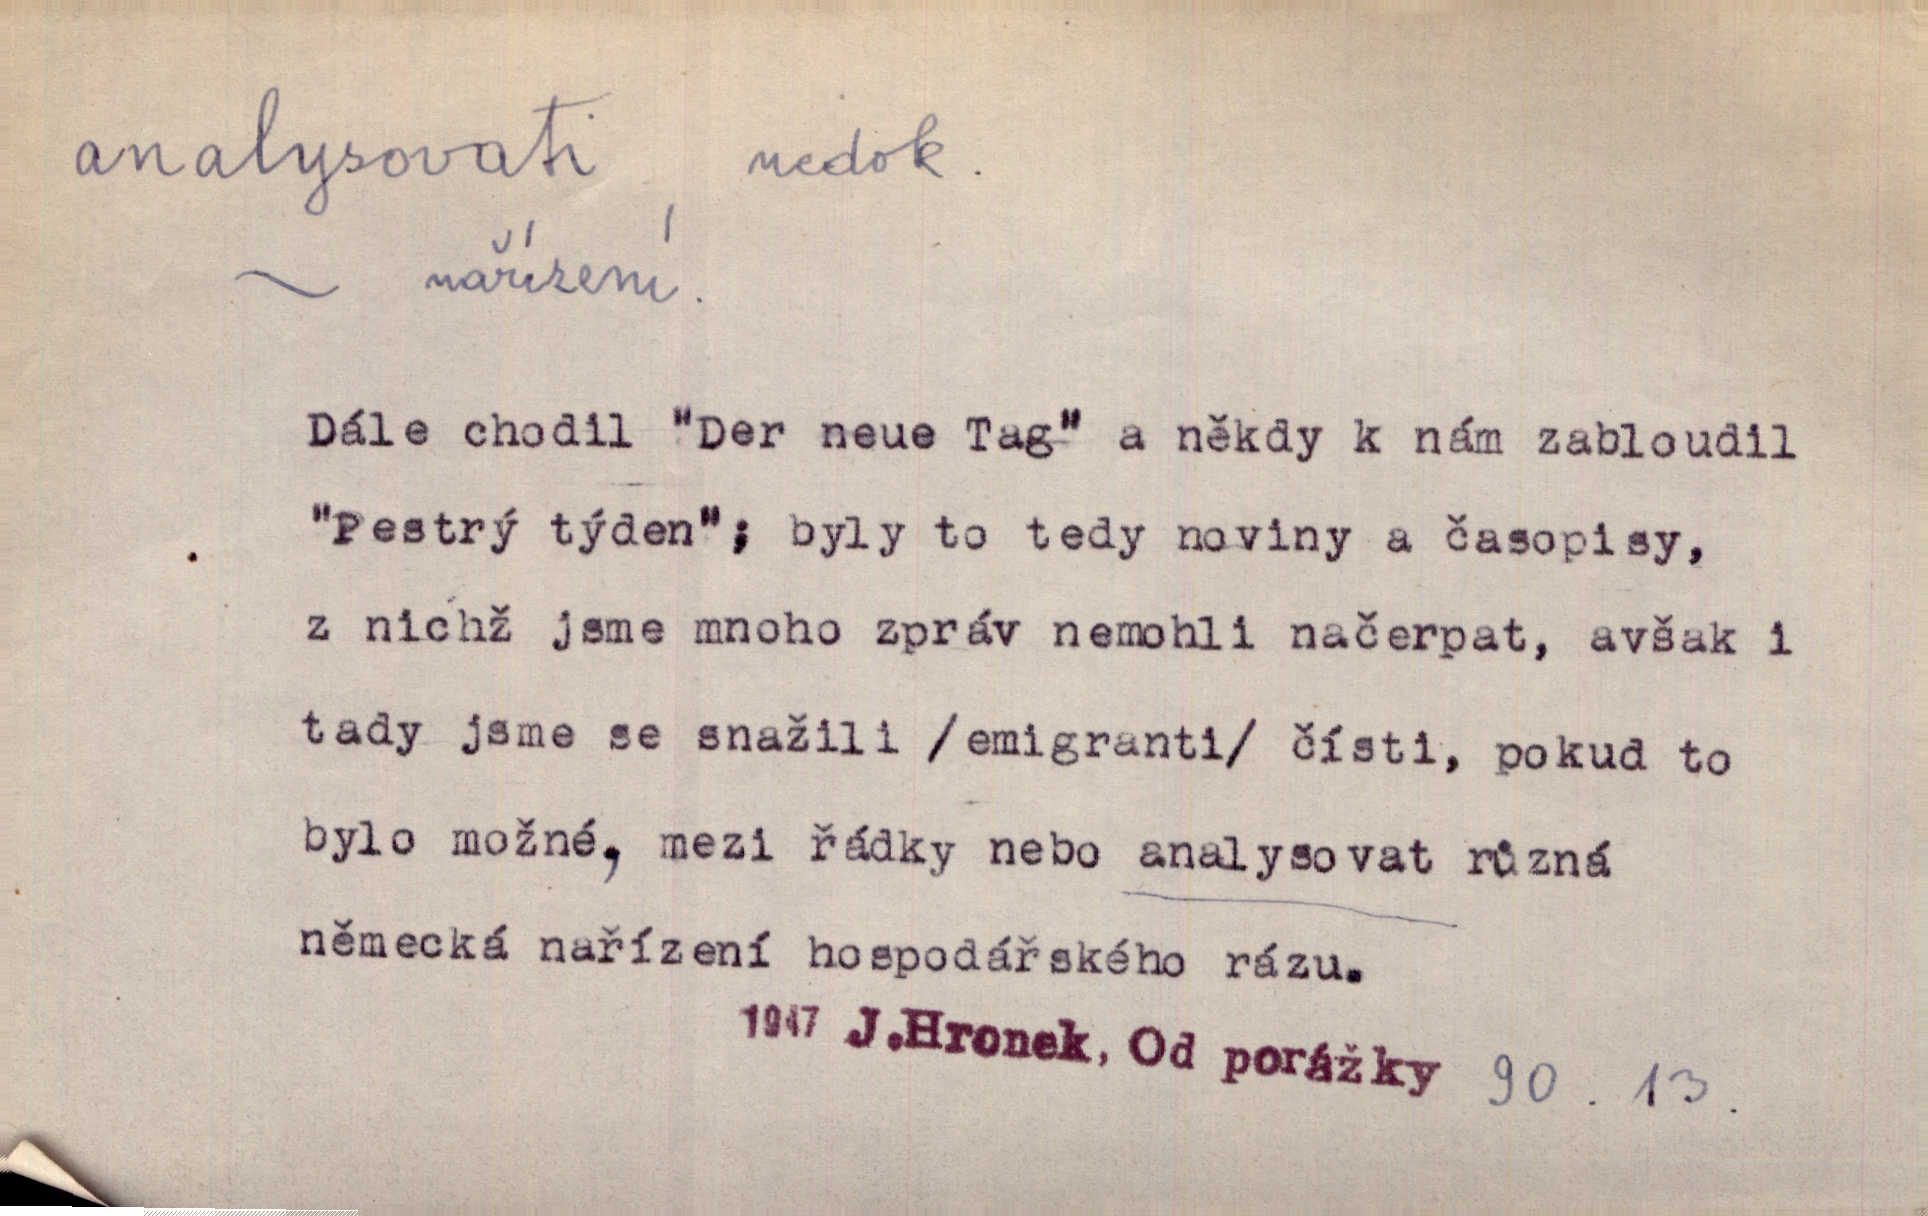 analysovati nedok.
~ nařízení.
Dále chodil "Der neue Tag" a někdy k nám zabloudil
"Pestrý týden"; byly to tedy noviny a časopisy,
z nichž jsme mnoho zpráv nemohli načerpat, avšak i
tady jsme se snažili /emigranti/ čísti, pokud to
bylo možné, mezi řádky nebo analysovat různá
německá nařízení hospodářského rázu.
1947 J.Hronek, Od porážky 90. 13.